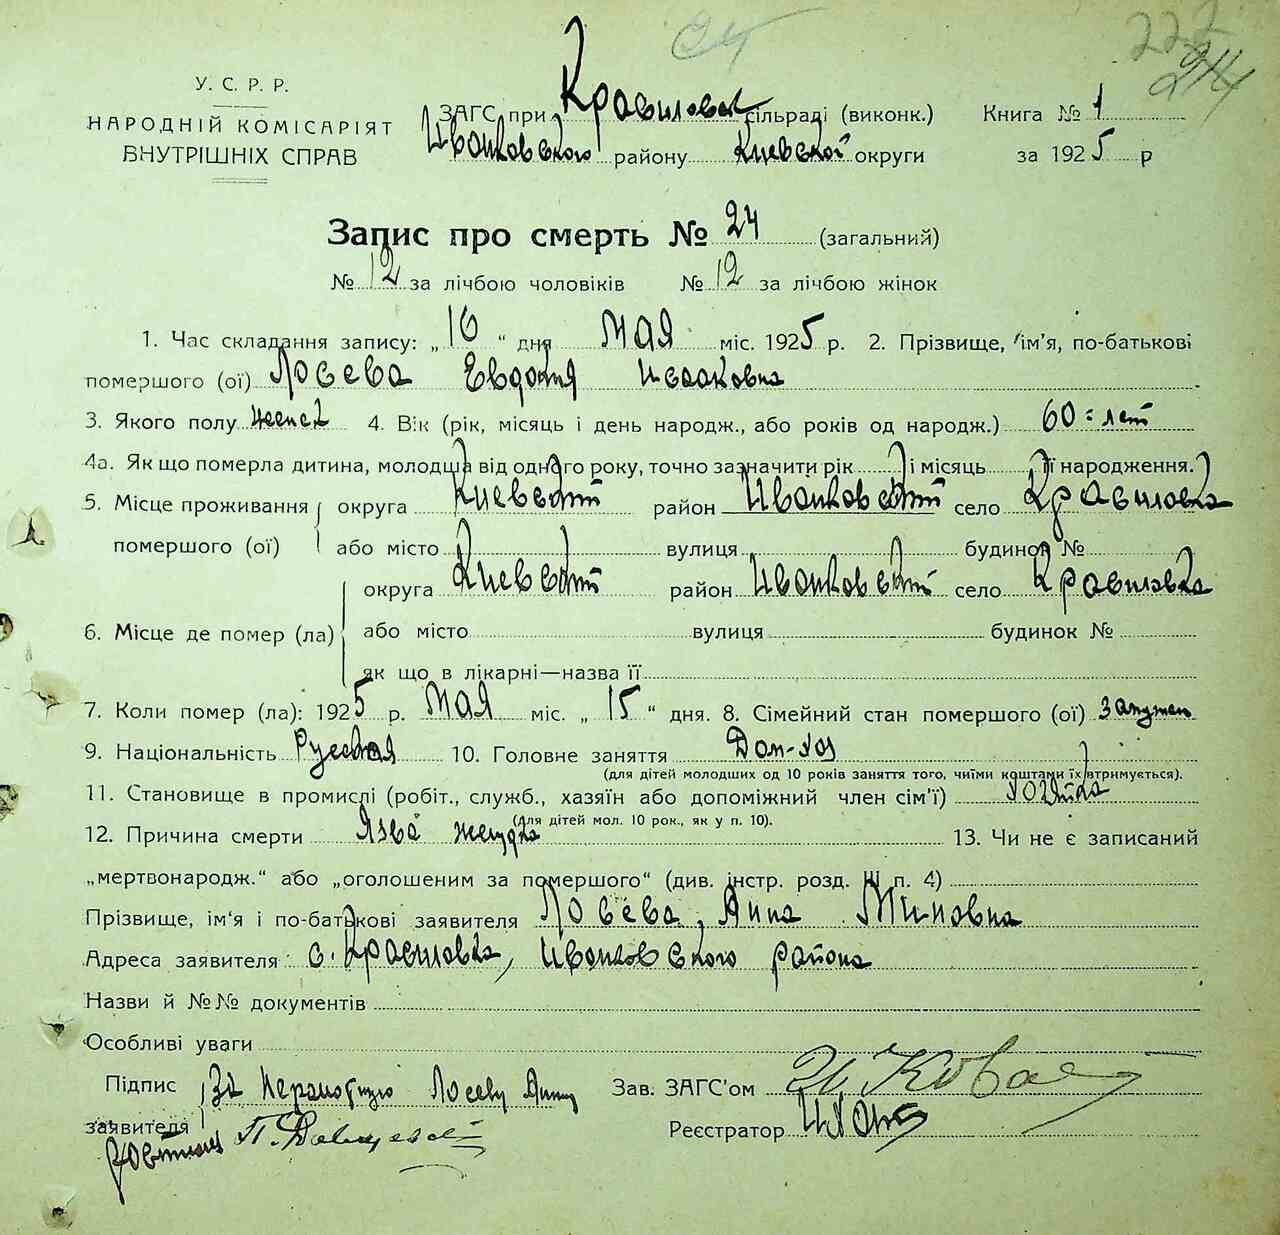 222
24
244
У. С. Р. Р.
НАРОДНІЙ КОМІСАРІЯТ
ВНУТРІШНІХ СПРАВ
ЗАГС при Красиловск сільраді (виконк.) Книга № 1
Иванковского району Киевской округи за 1925 р
Запис про смерть № 24 (загальний)
№ 12 за лічбою чоловіків № 12 за лічбою жінок
1. Час складання запису: „ 16 “ дня МАЯ міс. 1925 р. 2. Прізвище, ім'я, по-батькові
помершого (ої) Лосева Евдокия Исааковна
3. Якого полу женск 4. Вік (рік, місяць і день народж., або років од народж.) 60 = лет
4а. Як що померла дитина, молодша від одного року, точно зазначити рік і місяць її народження.
5. Місце проживання округа Киевский район Иванковский село Красиловка
помершого (ої) або місто вулиця будинок №
округа Киевский район Иванковский село Красиловка
6. Місце де помер (ла) або місто вулиця будинок №
як що в лікарні—назва її
7. Коли помер (ла): 1925 р. МАЯ міс. „ 15 “ дня. 8. Сімейний стан помершого (ої) Замужем
9. Національність Русская 10. Головне заняття Дом-хоз
(для дітей молодших од 10 років заняття того, чиїми коштами їх втримується).
11. Становище в промислі (робіт., служб., хазяїн або допоміжний член сім'ї) хозяйка
(для дітей мол. 10 рок., як у п. 10).
12. Причина смерти Язва желудка 13. Чи не є записаний
„мертвонародж.“ або „оголошеним за помершого“ (див. інстр. розд. III п. 4)
Прізвище, ім'я і по-батькові заявителя Лосева, Анна Миновна
Адреса заявителя: с. Красиловка, Иванковского района
Назви й №№ документів
Особливі уваги
Підпис За неграмотную Лосеву Анну Зав. ЗАГС'ом
заявителя Реєстратор